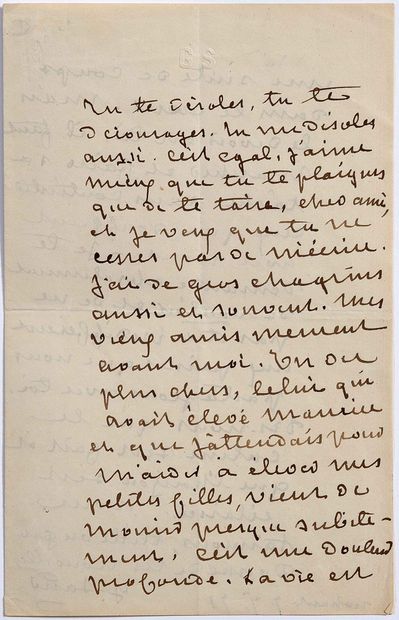 Tu te désoles, tu te
décourages. Tu me désoles
aussi. C'est égal, j'aime
mieux que tu te plaignes
que de te taire, cher ami,
et je veux que tu ne
cesses pas de m'écrire.
J'ai de gros chagrins
aussi et souvent. Mes
vieux amis meurent
avant moi. Un des
plus chers, celui qui
avait élevé Maurice
et que j'attendais pour
m'aider à élever mes
petites filles vient de
mourir presque subite-
ment, c'est une douleur
profonde. La vie est